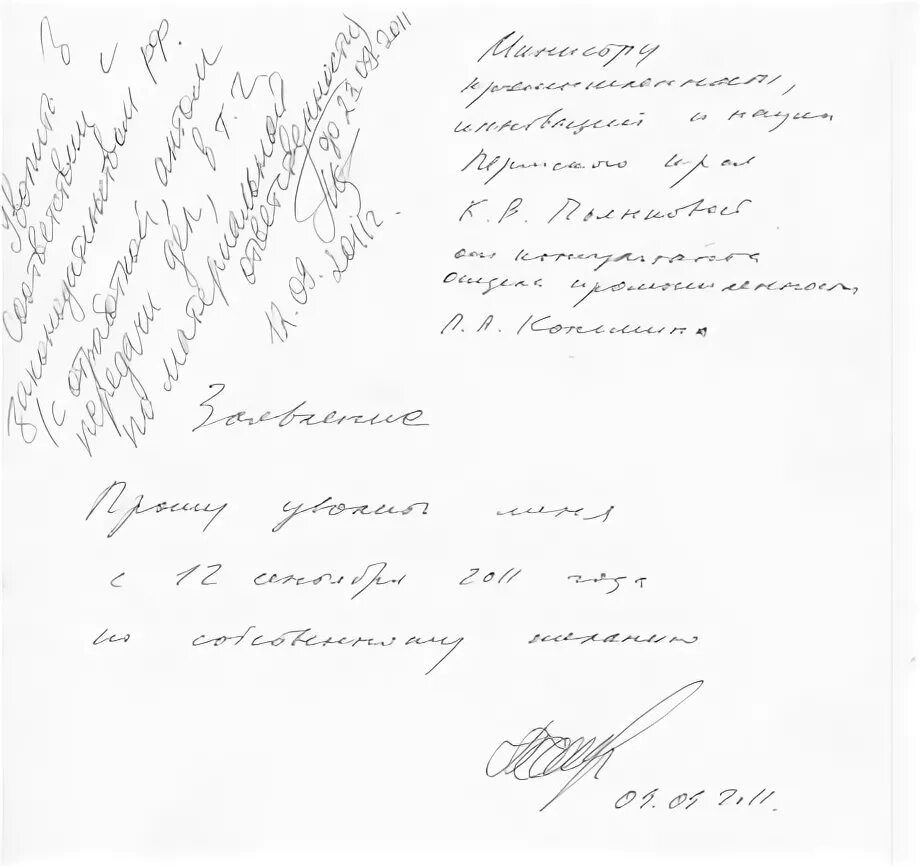 Министру
промышленности,
инноваций и науки
Пермского края
К.В. Пьянковой
от консультанта
отдела промышленности
Л.А.
Уволить в
соответствии с
законодательством РФ.
(с отработкой, актом
передачи дел, в т.ч.
по материальной
ответственности
до 23.09.2011
12.09.2011г.
Заявление
Прошу уволить меня
с 12 сентября 2011 года
по собственному желанию
09.09 2011.